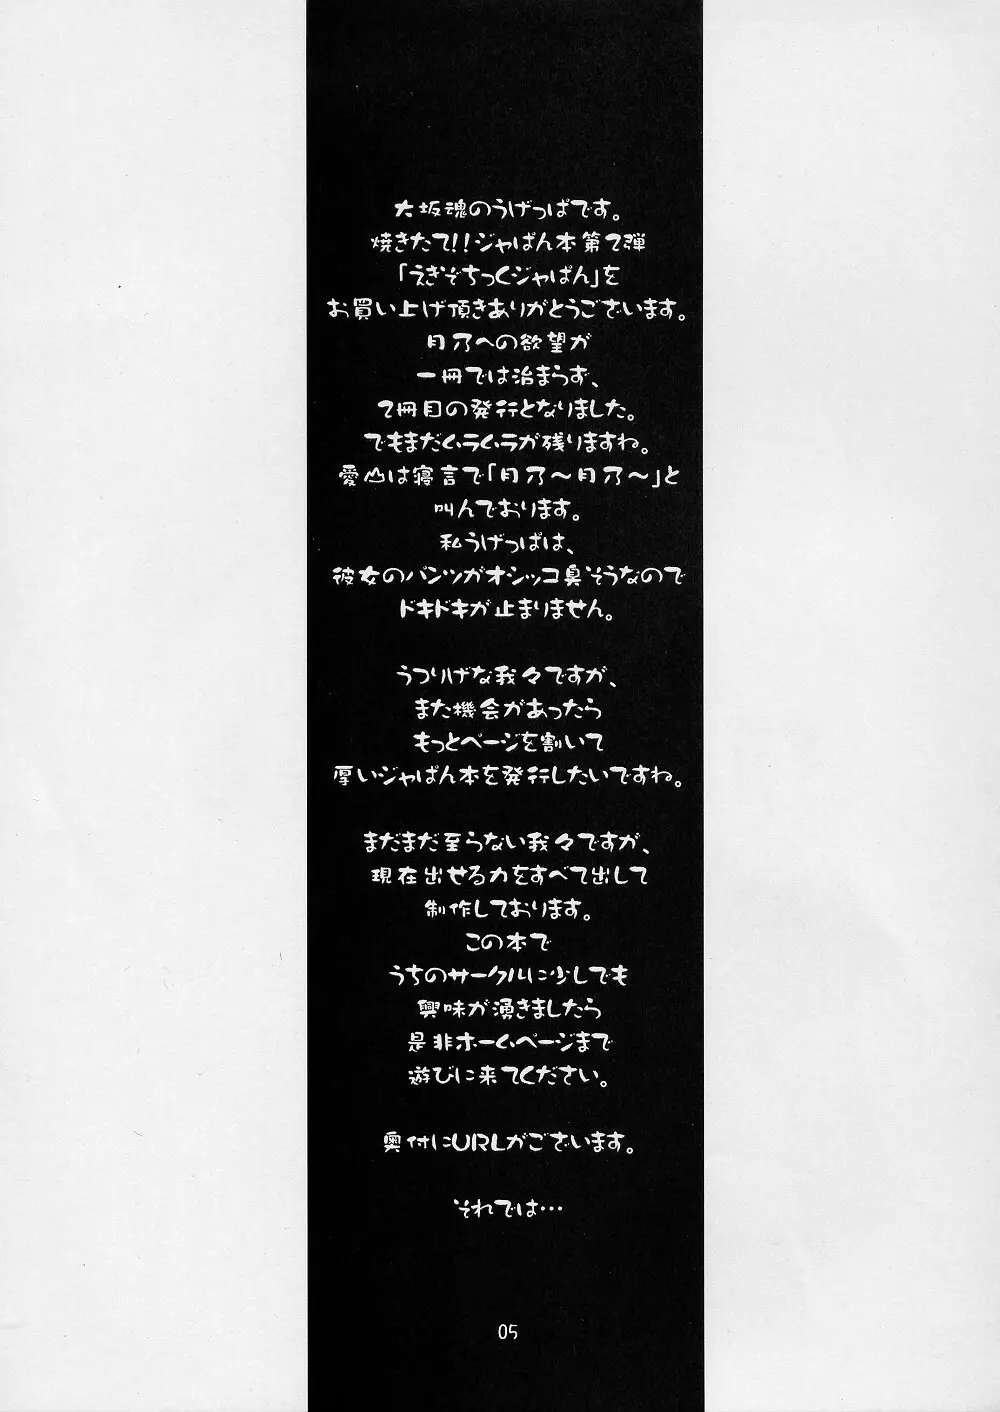 大坂魂のうげっぱです。
焼きたて!!ジャぱん本第2弾
「えぎぞちっくジャぱん」を
お買い上げ頂きありがとうございます。
月乃への欲望が
一冊では治まらず、
2冊目の発行となりました。
でもまだムラムラが残りますね。
愛山は寝言で「月乃〜月乃〜」と
叫んでおります。
私うげっぱは、
彼女のパンツがオシッコ臭そうなので
ドキドキが止まりません。
うつりげな我々ですが、
また機会があったら
もっとページを割いて
厚いジャぱん本を発行したいですね。
まだまだ至らない我々ですが、
現在出せる力をすべて出して
制作しております。
この本で
うちのサークルに少しでも
興味が湧きましたら
是非ホームページまで
遊びに来てください。
奥付にURLがございます。
それでは…
05